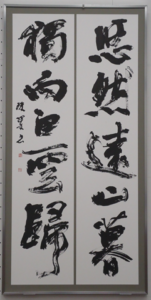 悠然遠山暮
獨向白雲歸